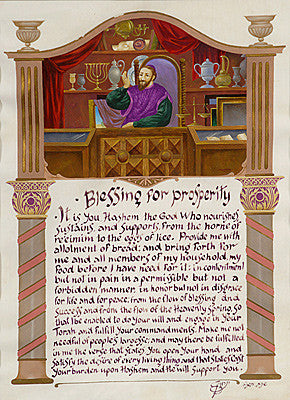 Blessing for prosperity
It is You Hashem the God Who nourishes
Sustains, and Supports, From the horns of
re'eimim to the eggs of lice. Provide me with
allotment of bread; and bring forth for
me and all members of my household, my
food before I have need for it; in contentment
but not in pain in a permissible but not a
forbidden manner, in honor but not in disgrace
for life and for peace; from the flow of blessing and
success and from the flow of the Heavenly Spring, so
that I be enabled to do your will and engage in your
Torah and fulfill your commandments. Make me not
needful of people's largesse; and may there be fulfilled
in me the verse that states, You open Your hand, and
satisfy the desire of every living thing and that states Cast
Your burden upon Hashem and He will support You.